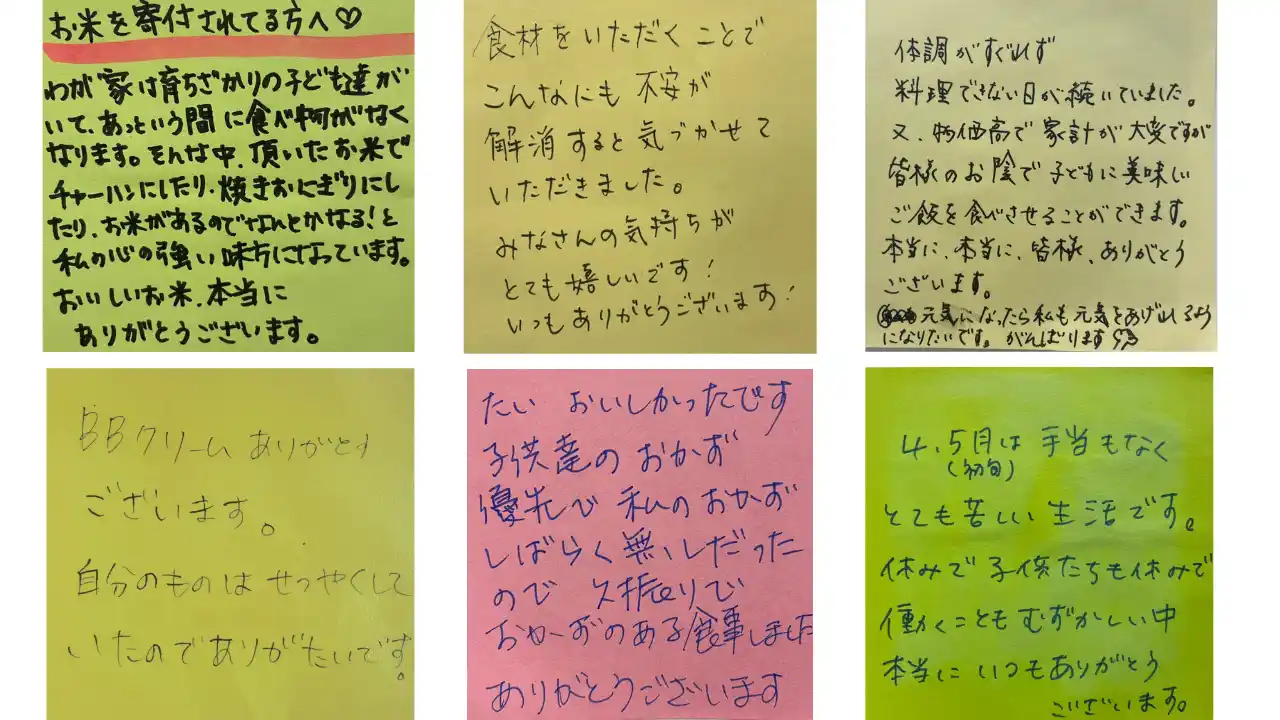 お米を寄付されてる方へ♡
わが家は育ちざかりの子ども達が
いて、あっという間に食べ物がなく
なります。そんな中、頂いたお米で
チャーハンにしたり、焼きおにぎりにし
たり、お米があるのでなんとかなる!と
私の心の強い味方になっています。
おいしいお米、本当に
ありがとうございます。
食材をいただくことで
こんなにも不安が
解消すると気づかせて
いただきました。
みなさんの気持ちが
とても嬉しいです!
いつもありがとうございます!
体調がすぐれず
料理できない日が続いていました。
又、物価高で家計が大変ですが
皆様のお陰で子どもに美味しい
ご飯を食べさせることができます。
本当に、本当に、皆様、ありがとう
ございます。
元気になったら私も元気をあげれるよう
になりたいです。がんばります
BBクリームありがとう
ございます。
自分のものはせつやくして
いたのでありがたいです。
たい おいしかったです
子供達のおかず
優先で私のおかず
しばらく無しだった
ので 久振りで
おかずのある食事しました
ありがとうございます
4、5月は手当もなく
(初旬)
とても苦しい生活です。
休みで子供たちも休みで
働くこともむずかしい中
本当にいつもありがとう
ございます。